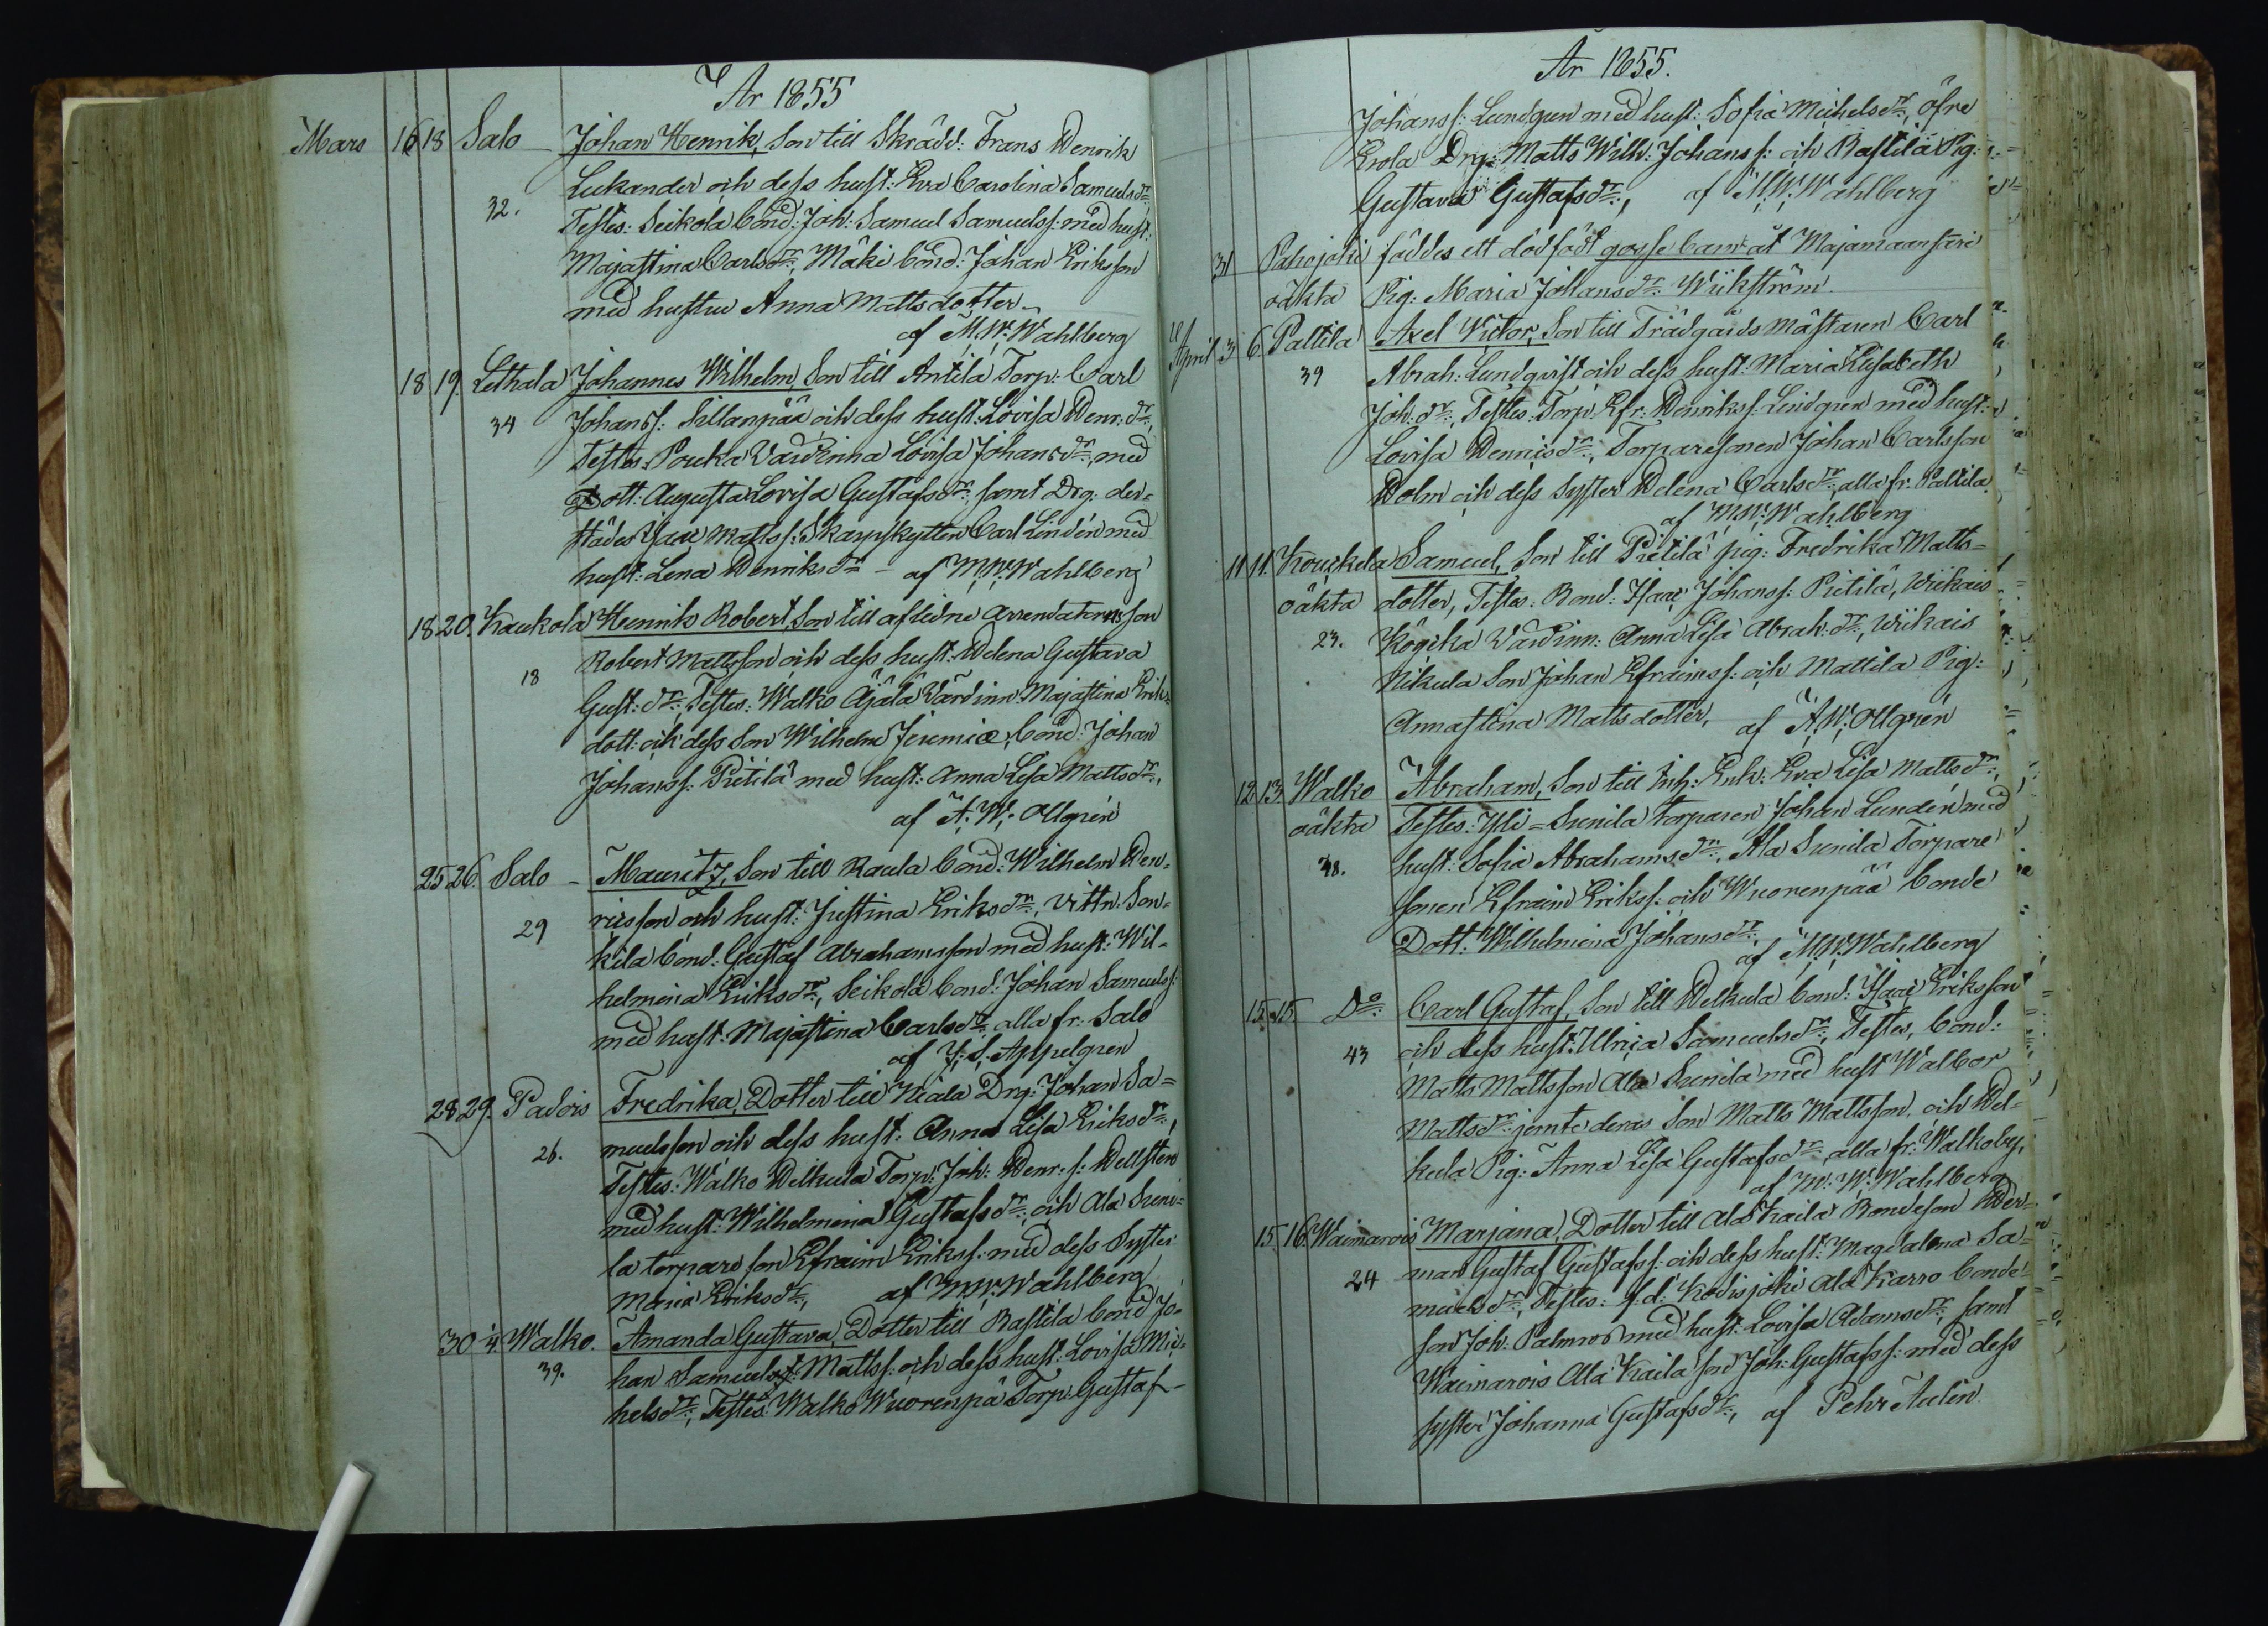 År 1855
Mars 16 18 Salo Johan Henrik, Son till Skrädd: Frans Henrik
Lukander och dess hust: Eva Carolina Samuelsdr:
32. Testes: Seikola Bond: Joh: Samuel Samuelss: med hust:
Majastina Carlsdr:, Mäki Bond: Johan Eriksson
med hustru Anna Mattsdotter
af M: W: Wahlberg
18 19. Lethala Johannes Wilhelm, Son till Anttila Torp: Carl
34 Johanss: Sillanpää och dess hust: Lovisa Henr: dr:,
Testes: Pouka Värdinna Lovisa Johansdr:, med
Dott: Augusta Lovisa Gustafsdr: samt Drg: der-
städes Isac Mattss: Skarpskytten Carl Lindén med
hust: Lena Henriksdr: af M: W: Wahlberg
18 20. Kaukola Henrik Robert, Son till aflidne arrendatorns son
18 Robert Mattsson och dess hust: Helena Gustava
Gust: dr: Testes: Walko Äjälä Värdinn: Majastina Eriks-
dott: och dess Son Wilhelm Jeremiæ, Bond: Johan
Johanss: Pietilä med hust: Anna Lisa Mattsdr:,
af A: W: Ollgrén
25 26. Salo Mauritz, Son till Raula Bond: Wilhelm Hen-
29 ricsson och hust: Justina Eriksdr:, vittn: Son-
kila Bond: Gustaf Abrahamsson med hust: Wil-
helmina Eriksdr:, Seikola Bond: Johan Samuelss:
med hust: Majastina Carlsdr: alla fr: Salo
af J: S: Appelgren
28 29. Padois Fredrika, Dotter till Niala Drg: Johan Sa-
26. muelsson och dess hust: Anna Lisa Eriksdr:,
Testes: Walko Helkula Torp: Joh: Henr: s: Hellsten
med hust: Wilhelmina Gustafsdr:, och Ala Suni-
la torpare son Efraim Erikss: med dess Syster
Maria Eriksdr:, af M: W: Wahlberg
30 1/4 Walko. Amanda Gustava, Dotter till Rastila Bond Jo-
39. han Samuel Mattss: och dess hust: Lovisa Mic-
helsdr:, Testes: Walko Wuorenpä Torp: Gustaf
År 1855.
Johanss: Lundgren med hust: Sofia Michelsdr:, öfre
Erola Drg: Matts Wilh: Johanss: och Rastila Pig:
Gustava Gustafsdr:, af M: W: Wahlberg
31 Pahajoki föddes ett dödfödt gosse barn åt Majamaansari
oäkta Pig: Maria Johansdr: Wikström.
April 3 6. Paltila Axel Victor, Son till Trädgårds Mästaren Carl
39 Abrah: Lundqvist och dess hust: Maria Elisabeth
Joh: dr:, Testes: Torp: Efr: Henrikss: Lindgren med hust:
Lovisa Dennisdr:, Torparesonen Johan Carlsson
Holm och dess syster Helena Carlsdr:, alla fr: Paltila
af M: W: Wahlberg
11 11. Kouckela Samuel, Son till Pietilä pig: Fredrika Matts-
oäkta dotter, Testes: Bond: Isac Johanss: Pietilä, Wiikais
23. Kögikä Värdinn: Anna Lisa Abrah: dr:, Wiikais
Nikula Son Johan Efraimss: och Mattila Pig:
Annastina Mattsdotter, af A: W: Ollgrén
12 13 Walko Abraham, Son till Inh: Enk: Eva Lisa Mattsdr:,
oäkta Testes: Yli-Sunila torparen Johan Lundén med
38. hust: Sofia Abrahamsdr:, Ala Sunila Torpare
sonen Efraim Erikss: och Wuorenpää Bonde
Dott: Wilhelmina Johansdr:,
af M: W: Wahlberg
15 15 Do: Carl Gustaf, Son till Helkula Bond: Isaac Eriksson
43 och dess hust: Ulrica Samuelsdr:, Testes, Bond:
Matts Mattsson Ala Sunila med hust Walbor
Mattsdr: jemte deras Son Matts Mattsson, och Hel-
kula Pig: Anna Lisa Gustafsdr: alla fr: Walkoby,
af M: W: Wahlberg
15 16. Waimarois Marjana, Dotter till Ala Kaila Bondeson Her-
24 man Gustaf Gustafss: och dess hust: Magdalena Sa-
muelsdr:, Testes: f: d: Kodisjoki Ala Karro Bonde
son Joh: Palmros med hust: Lovisa Adamsdr:, samt
Waimarois Ala Kaila son Joh: Gustafss: med dess
syster Johanna Gustafsdr:, af Pehr Aulin.